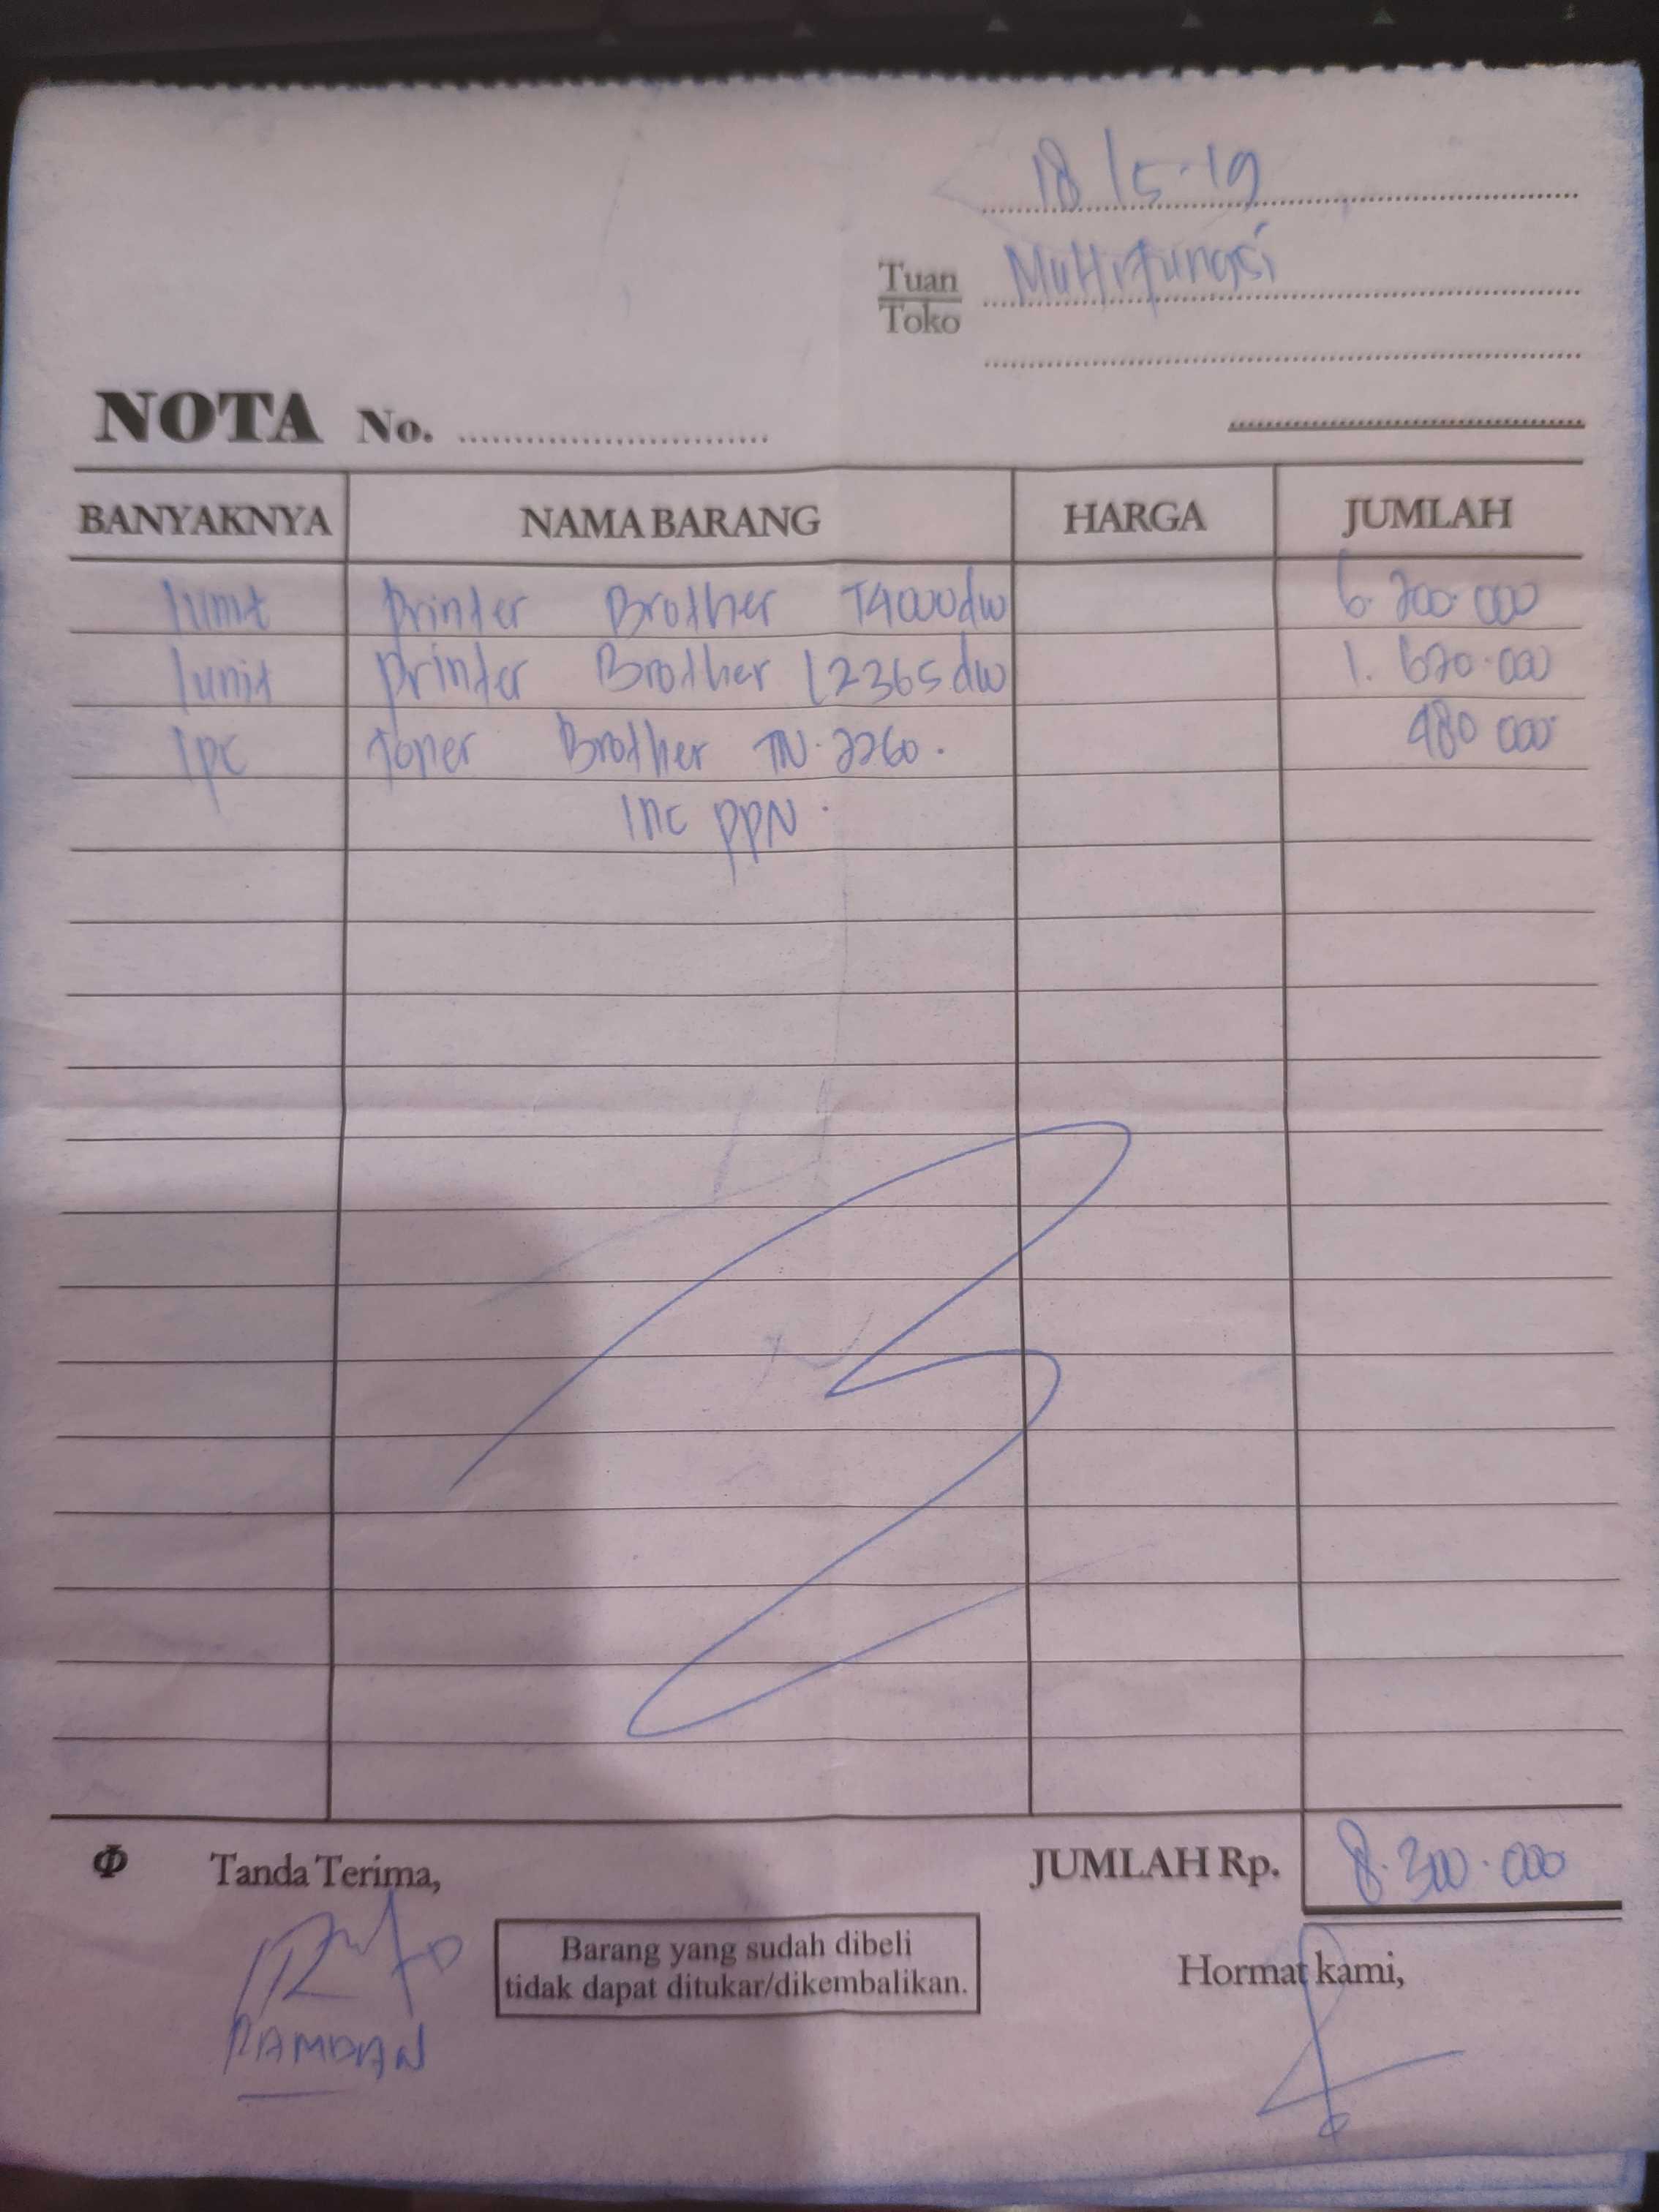 18/5-19
Tuan
Toko
Multifungsi
NOTA No.
BANYAKNYA NAMA BARANG HARGA JUMLAH
1unit Printer Brother T4000dw 6.200.000
1unit Printer Brother L2365dw 1.620.000
1pc Toner Brother TN.2260. 480 000
Inc PPN.
Tanda Terima, JUMLAH Rp. 8.300.000
Barang yang sudah dibeli
tidak dapat ditukar/dikembalikan.
Hormat kami,
RAMDAN